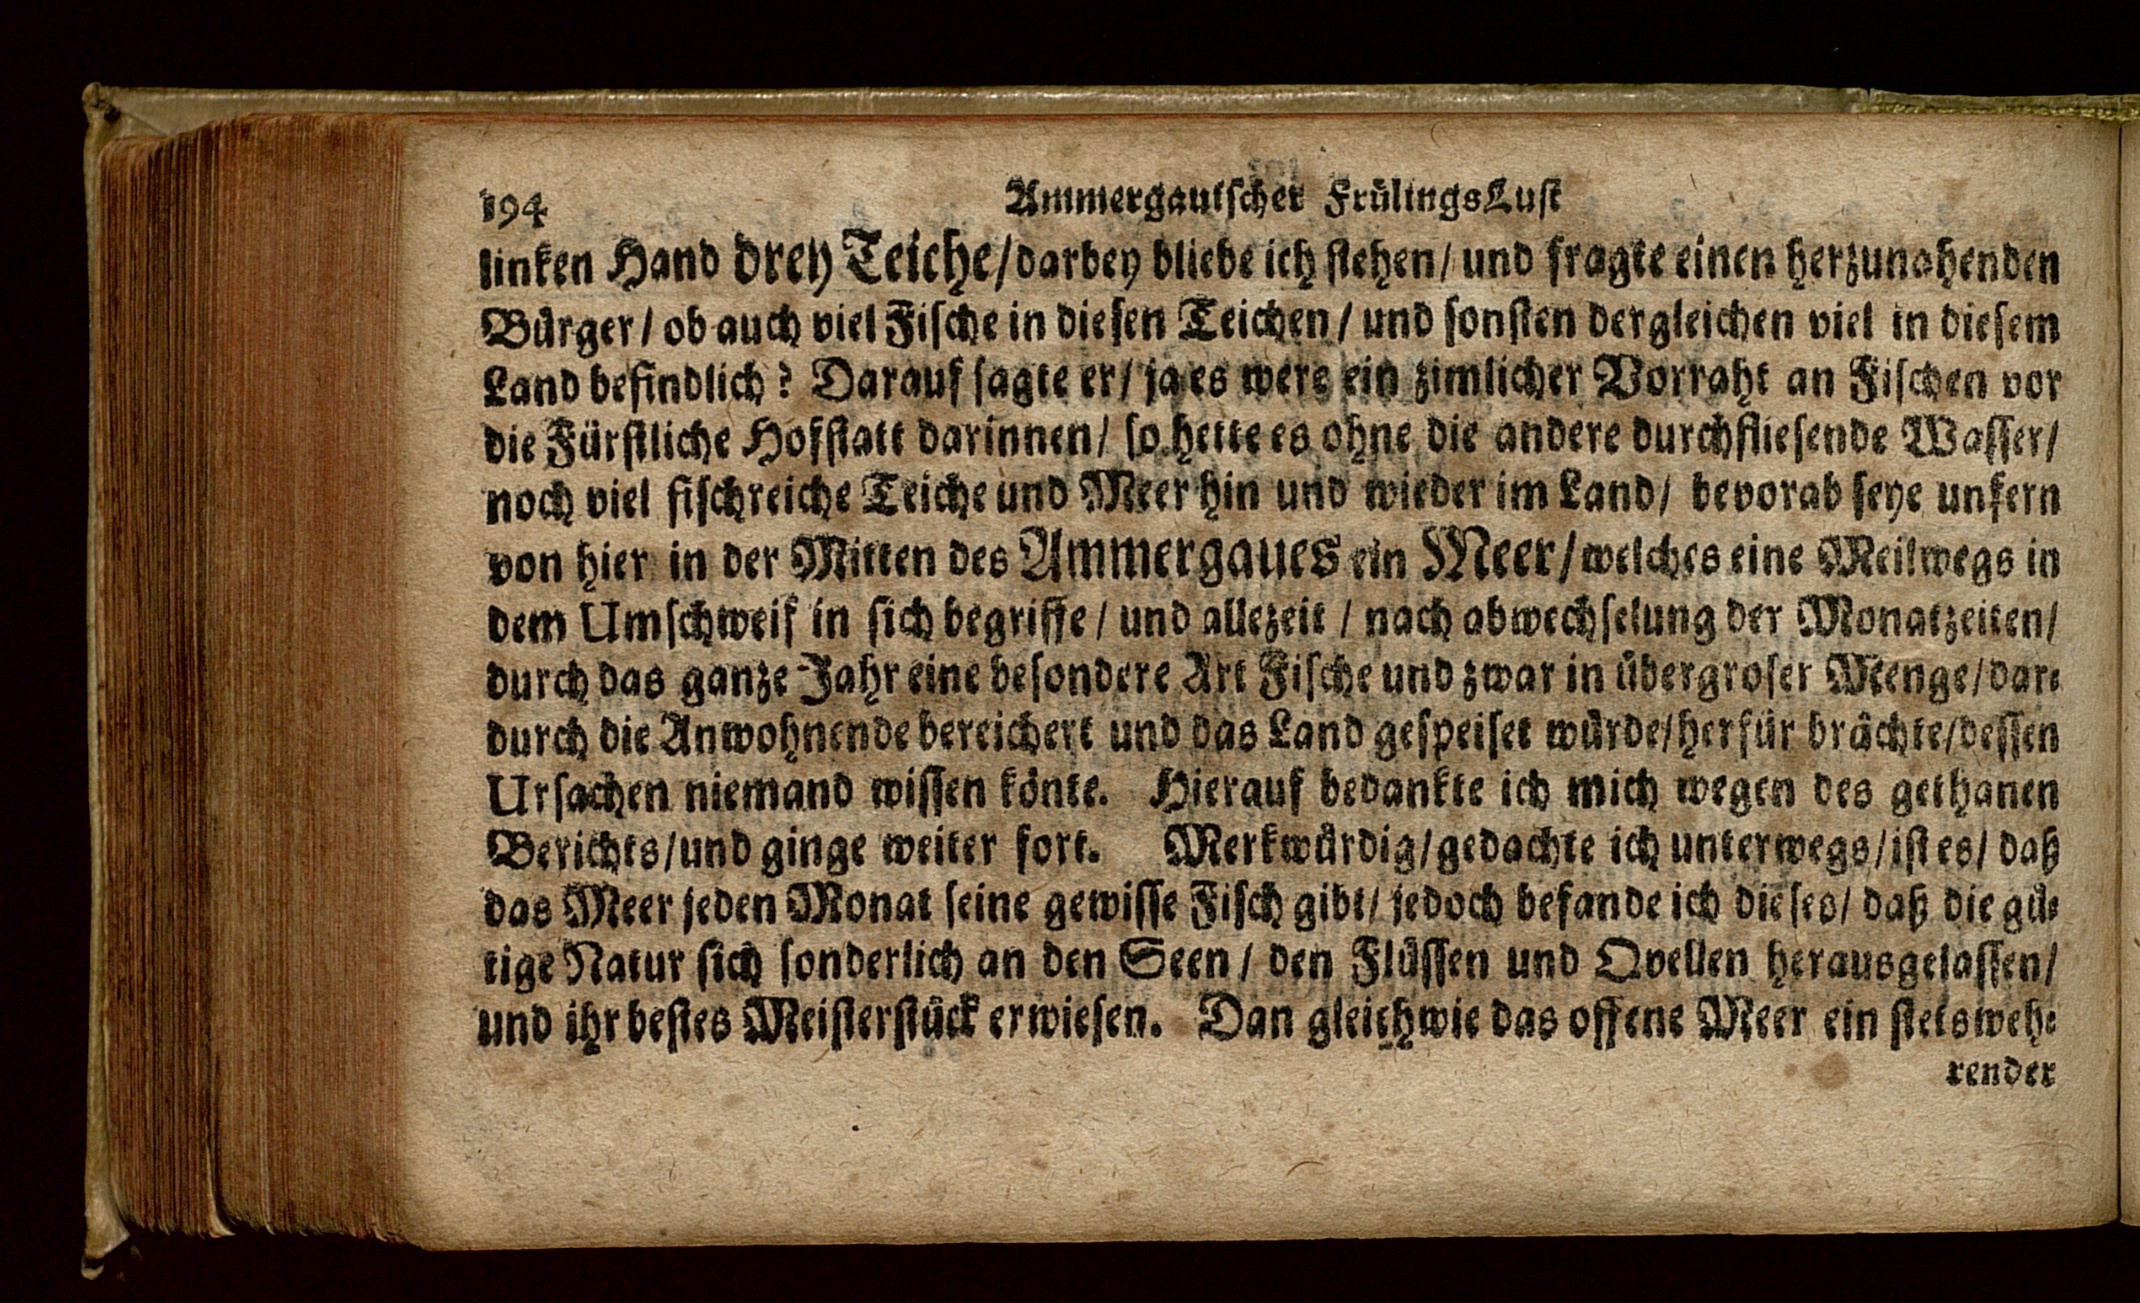 194 Ammergauiſcher FrůlingsLuſt
linken Hand drey Teiche/darbey bliebe ich ſtehen/ und fragte einen herzunahenden
Bůrger/ ob auch viel Fiſche in dieſen Teichen/ und ſonſten dergleichen viel in dieſem
Land befindlich? Darauf ſagte er/ ja es were ein zimlicher Vorraht an Fiſchen vor
die Fürſtliche Hofſtatt darinnen/ ſo hette es ohne die andere durchflieſende Waſſer/
noch viel fiſchreiche Teiche und Meer hin und wieder im Land/ bevorab ſeye unfern
von hier in der Mitten des Ammergaues ein Meer/welches eine Meilwegs in
dem Umſchweif in ſich begriffe/ und allezeit/ nach abwechſelung der Monatzeiten/
durch das ganze Jahr eine beſondere Art Fiſche und zwar in ůbergroſer Menge/dar⸗
durch die Anwohnende bereichert und das Land geſpeiſet wůrde/herfür bråchte/deſſen
Urſachen niemand wiſſen kônte. Hierauf bedankte ich mich wegen des gethanen
Berichts/und ginge weiter fort. Merkwůrdig/gedachte ich unterwegs/iſt es/ daß
das Meer jeden Monat ſeine gewiſſe Fiſch gibt/ jedoch befande ich dieſes/ daß die gů⸗
tige Natur ſich ſonderlich an den Seen/ den Flůſſen und Qvellen herausgelaſſen/
und ihr beſtes Meiſterſtůck erwieſen. Dan gleichwie das offene Meer ein ſtetsweh⸗
render